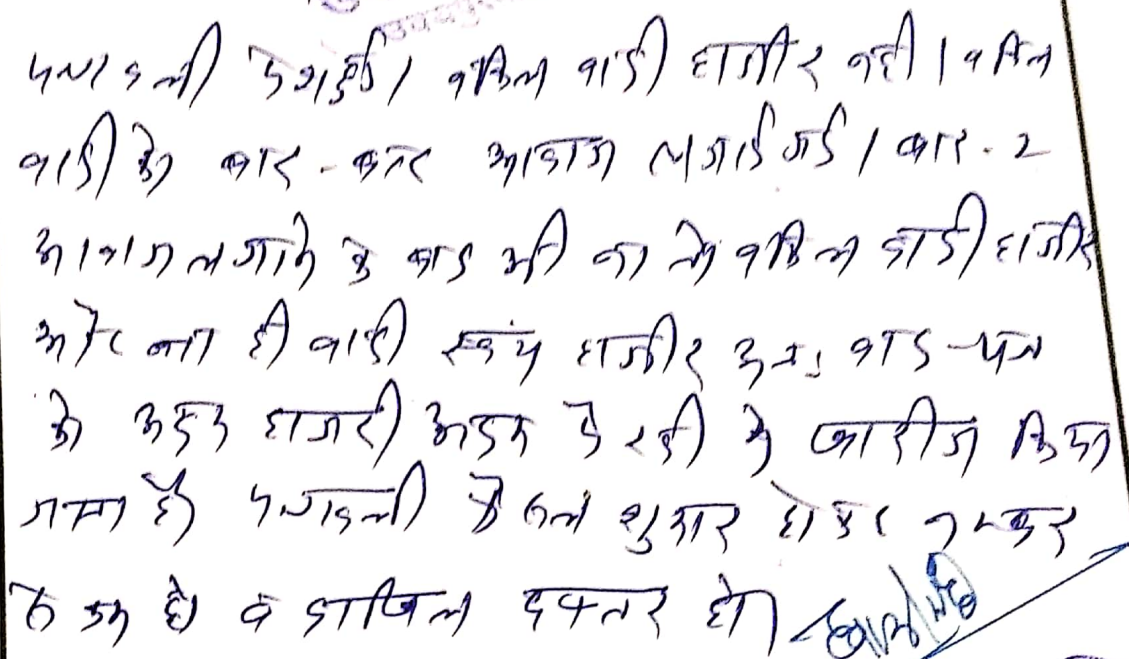 पत्रावली पेश हुई। वकिल वादी हाजीर नही। वकिल
वादी को बार-बार आवाज लगाई गई। बार-2
आवाज लगाने के बाद भी ना तो वकिल वादी हाजीर
और ना ही वादी स्वंय हाजीर अतः वाद-पत्र
को अदम हाजरी अदम पैरवी मे खारीज किया
जाता है पत्रावली फैसल शुमार होकर नम्बर
से कम हो व दाखिल दफ्तर हो।